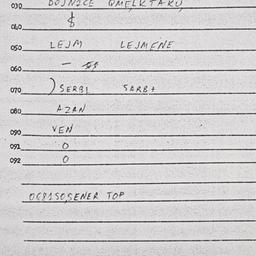 030 DOJNICE QMELKTAKU
040 $
050 LEJM LEJMENE
060 -
070 )SERBI SARB+
080 AZAN
090 VEN
091 0
092 0
TOP